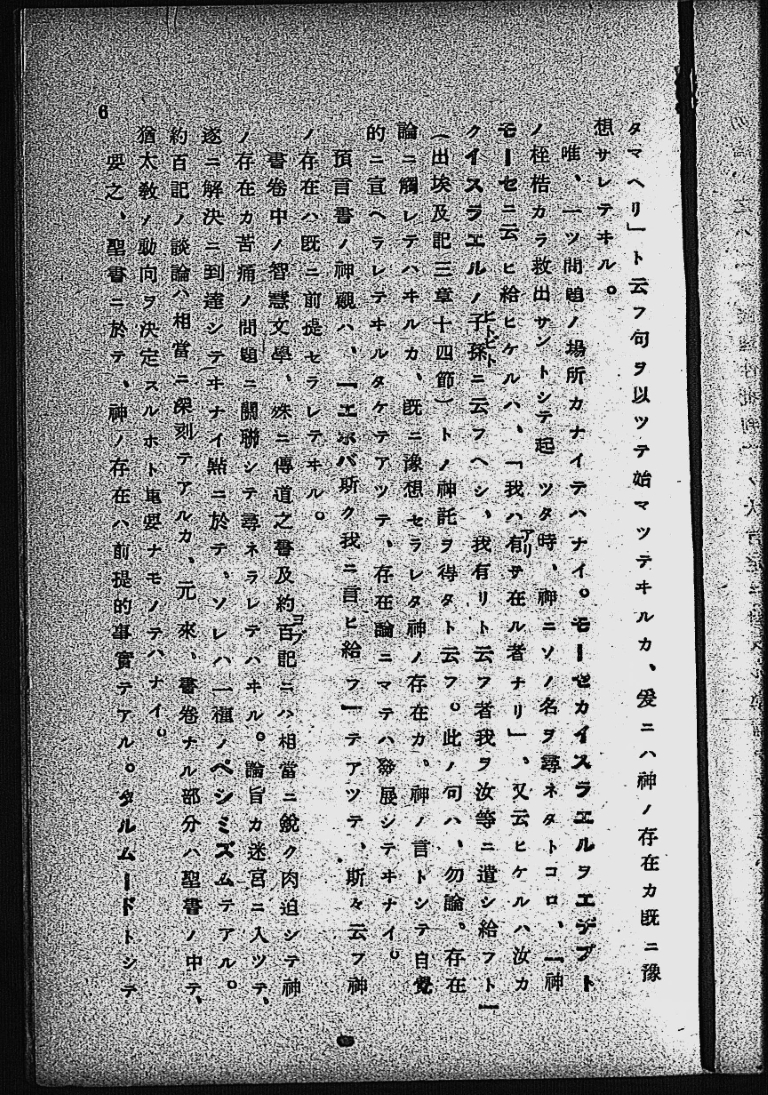 タマヘリ」ト云フ句ヲ以ツテ始マツテヰルカ、爰ニハ神ノ存在カ既ニ豫
想サレテヰル。
唯、一ツ問題ノ場所カナイテハナイ。モーセカイスラエルヲエヂプト
ノ桎梏カラ救出サントシテ起ツタ時、神ニソノ名ヲ尋ネタトコロ、「神
モーセニ云ヒ給ヒケルハ、「我ハ有アリテ在ル者ナリ」、又云ヒケルハ汝カ
クイスラエルノ子孫ヒトビトニ云フヘシ、我有リト云フ者我ヲ汝等ニ遣シ給フト」
(出埃及記三章十四節)トノ神託ヲ得タト云フ。此ノ句ハ、勿論、存在
論ニ觸レテハヰルカ、既ニ豫想セラレタ神ノ存在カ、神ノ言トシテ自覺
的ニ宣ヘラレテヰルタケテアツテ、存在論ニマテハ發展シテヰナイ。
預言書ノ神觀ハ、「エホバ斯ク我ニ言ヒ給フ」テアツテ、斯々云フ神
ノ存在ハ既ニ前提セラレテヰル。
書卷中ノ智慧文學、殊ニ傳道之書及約百ヨブ記ニハ相當ニ銳ク肉迫シテ神
ノ存在カ苦痛ノ問題ニ關聯シテ尋ネラレテハヰル。論旨カ迷宮ニ入ツテ、
遂ニ解決ニ到達シテヰナイ點ニ於テ、ソレハ一種ノペシミズムテアル。
約百記ノ談論ハ相當ニ深刻テアルカ、元來、書卷ナル部分ハ聖書ノ中テ、
猶太敎ノ動向ヲ決定スルホト重要ナモノテハナイ。
要之、聖書ニ於テ、神ノ存在ハ前提的事實テアル。タルムードトシテ
6